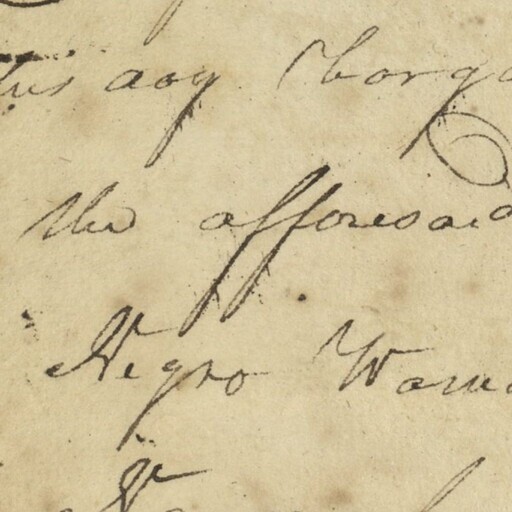 this day Barga
the afforesaid
Negro Woma